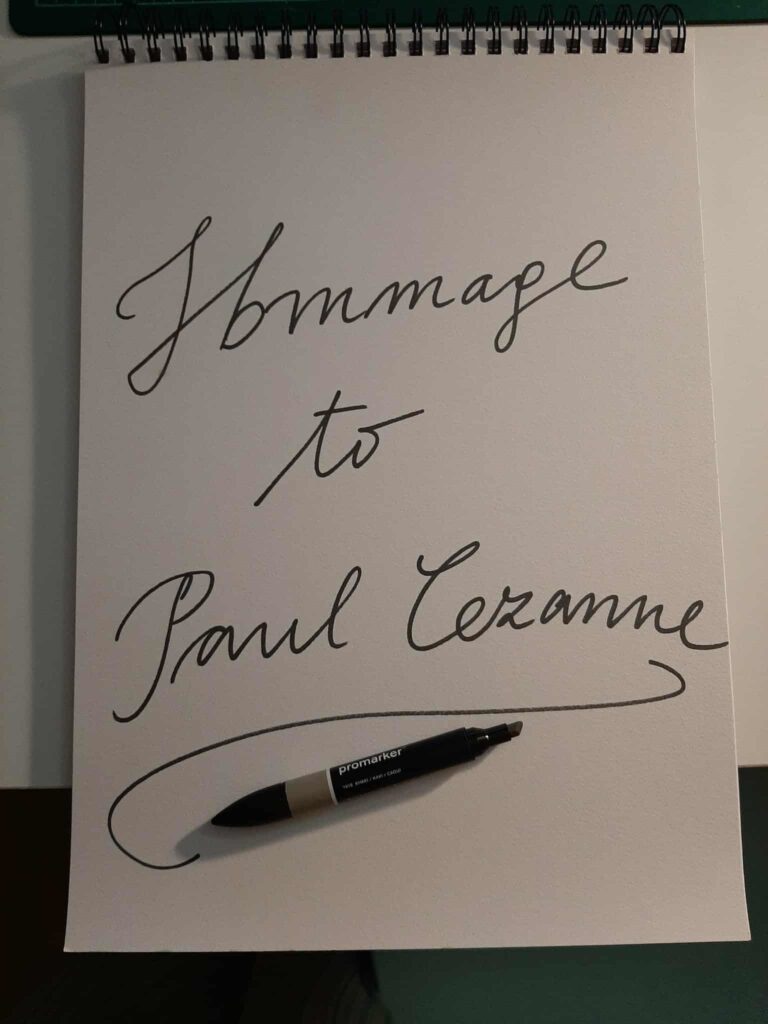 Hommage
to
Paul Cezanne
promarker